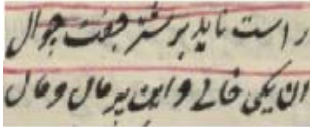 راست ناید بر شتر جفت جوال
آن یکی خالی و این پر مال و مال